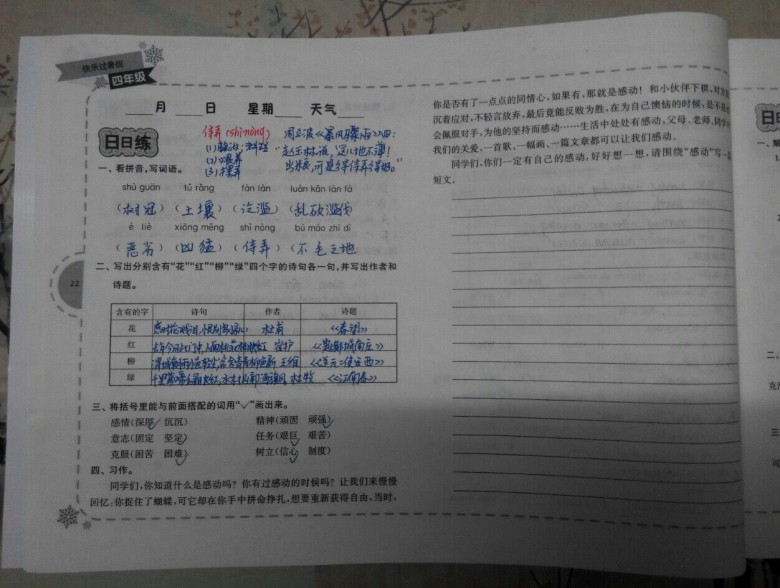 快乐过暑假
四年级
月 日 星期 天气
日日练
侍弄(shì nòng)
(3)摆弄
一、看拼音,写词语。
shù guān tǔ rǎng fàn làn luàn kǎn làn fá
(树冠)(土壤)(泛滥)(乱砍滥伐)
è liè xiōng měng shì nòng bù máo zhī dì
(恶劣)(凶猛)(侍弄)(不毛之地)
二、写出分别含有“花”“红”“柳”“绿”四个字的诗句各一句,并写出作者和
诗题。
含有的字 诗句 作者 诗题
花 感时花溅泪,恨别鸟惊心 杜甫 《春望》
红 去年今日此门中,人面桃花相映红 崔护
柳 王维 《送元二使安西》
绿 杜牧 《江南春》
三、将括号里能与前面搭配的词用“✓”画出来。
感情(深厚 沉沉) 精神(顽固 顽强)
意志(固定 坚定) 任务(艰巨 艰苦)
克服(困苦 困难) 树立(信心 制度)
四、习作。
同学们,你知道什么是感动吗?你有过感动的时候吗?让我们来慢慢
回忆:你捉住了蝴蝶,可它却在你手中拼命挣扎,想要重新获得自由,当时,
22
你是否有了一点点的同情心,如果有,那就是感动!和小伙伴下棋,对方
沉着应对,不轻言放弃,最后竟能反败为胜,在为自己懊恼的时候,是不是
会佩服对手,为他的坚持而感动……生活中处处有感动,父母、老师、同学
我们的关爱,一首歌、一幅画、一篇文章都可以让我们感动。
同学们,你们一定有自己的感动,好好想一想,请围绕“感动”写一
短文。
日
一、
克